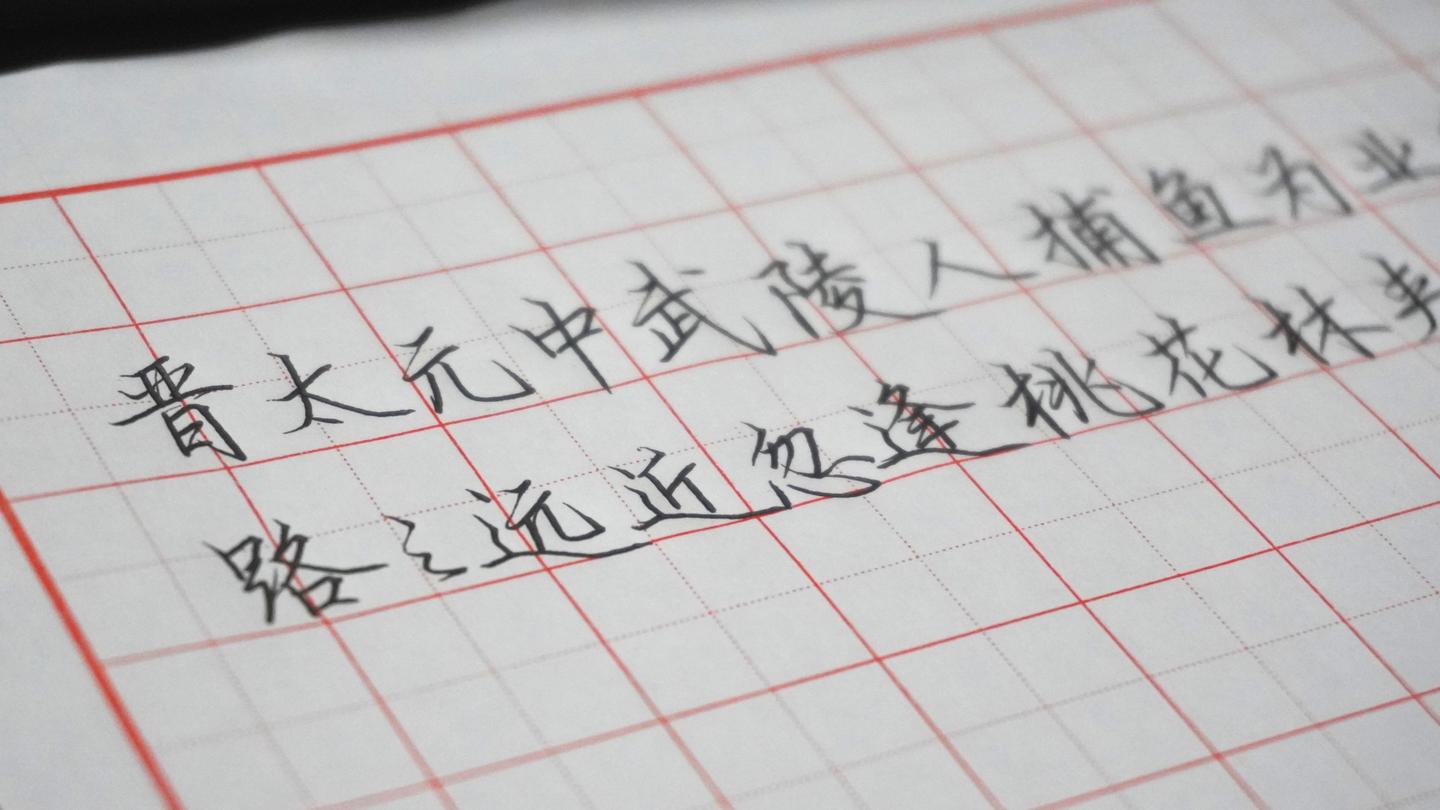 晋太元中武陵人捕鱼为业
路之远近忽逢桃花林夹